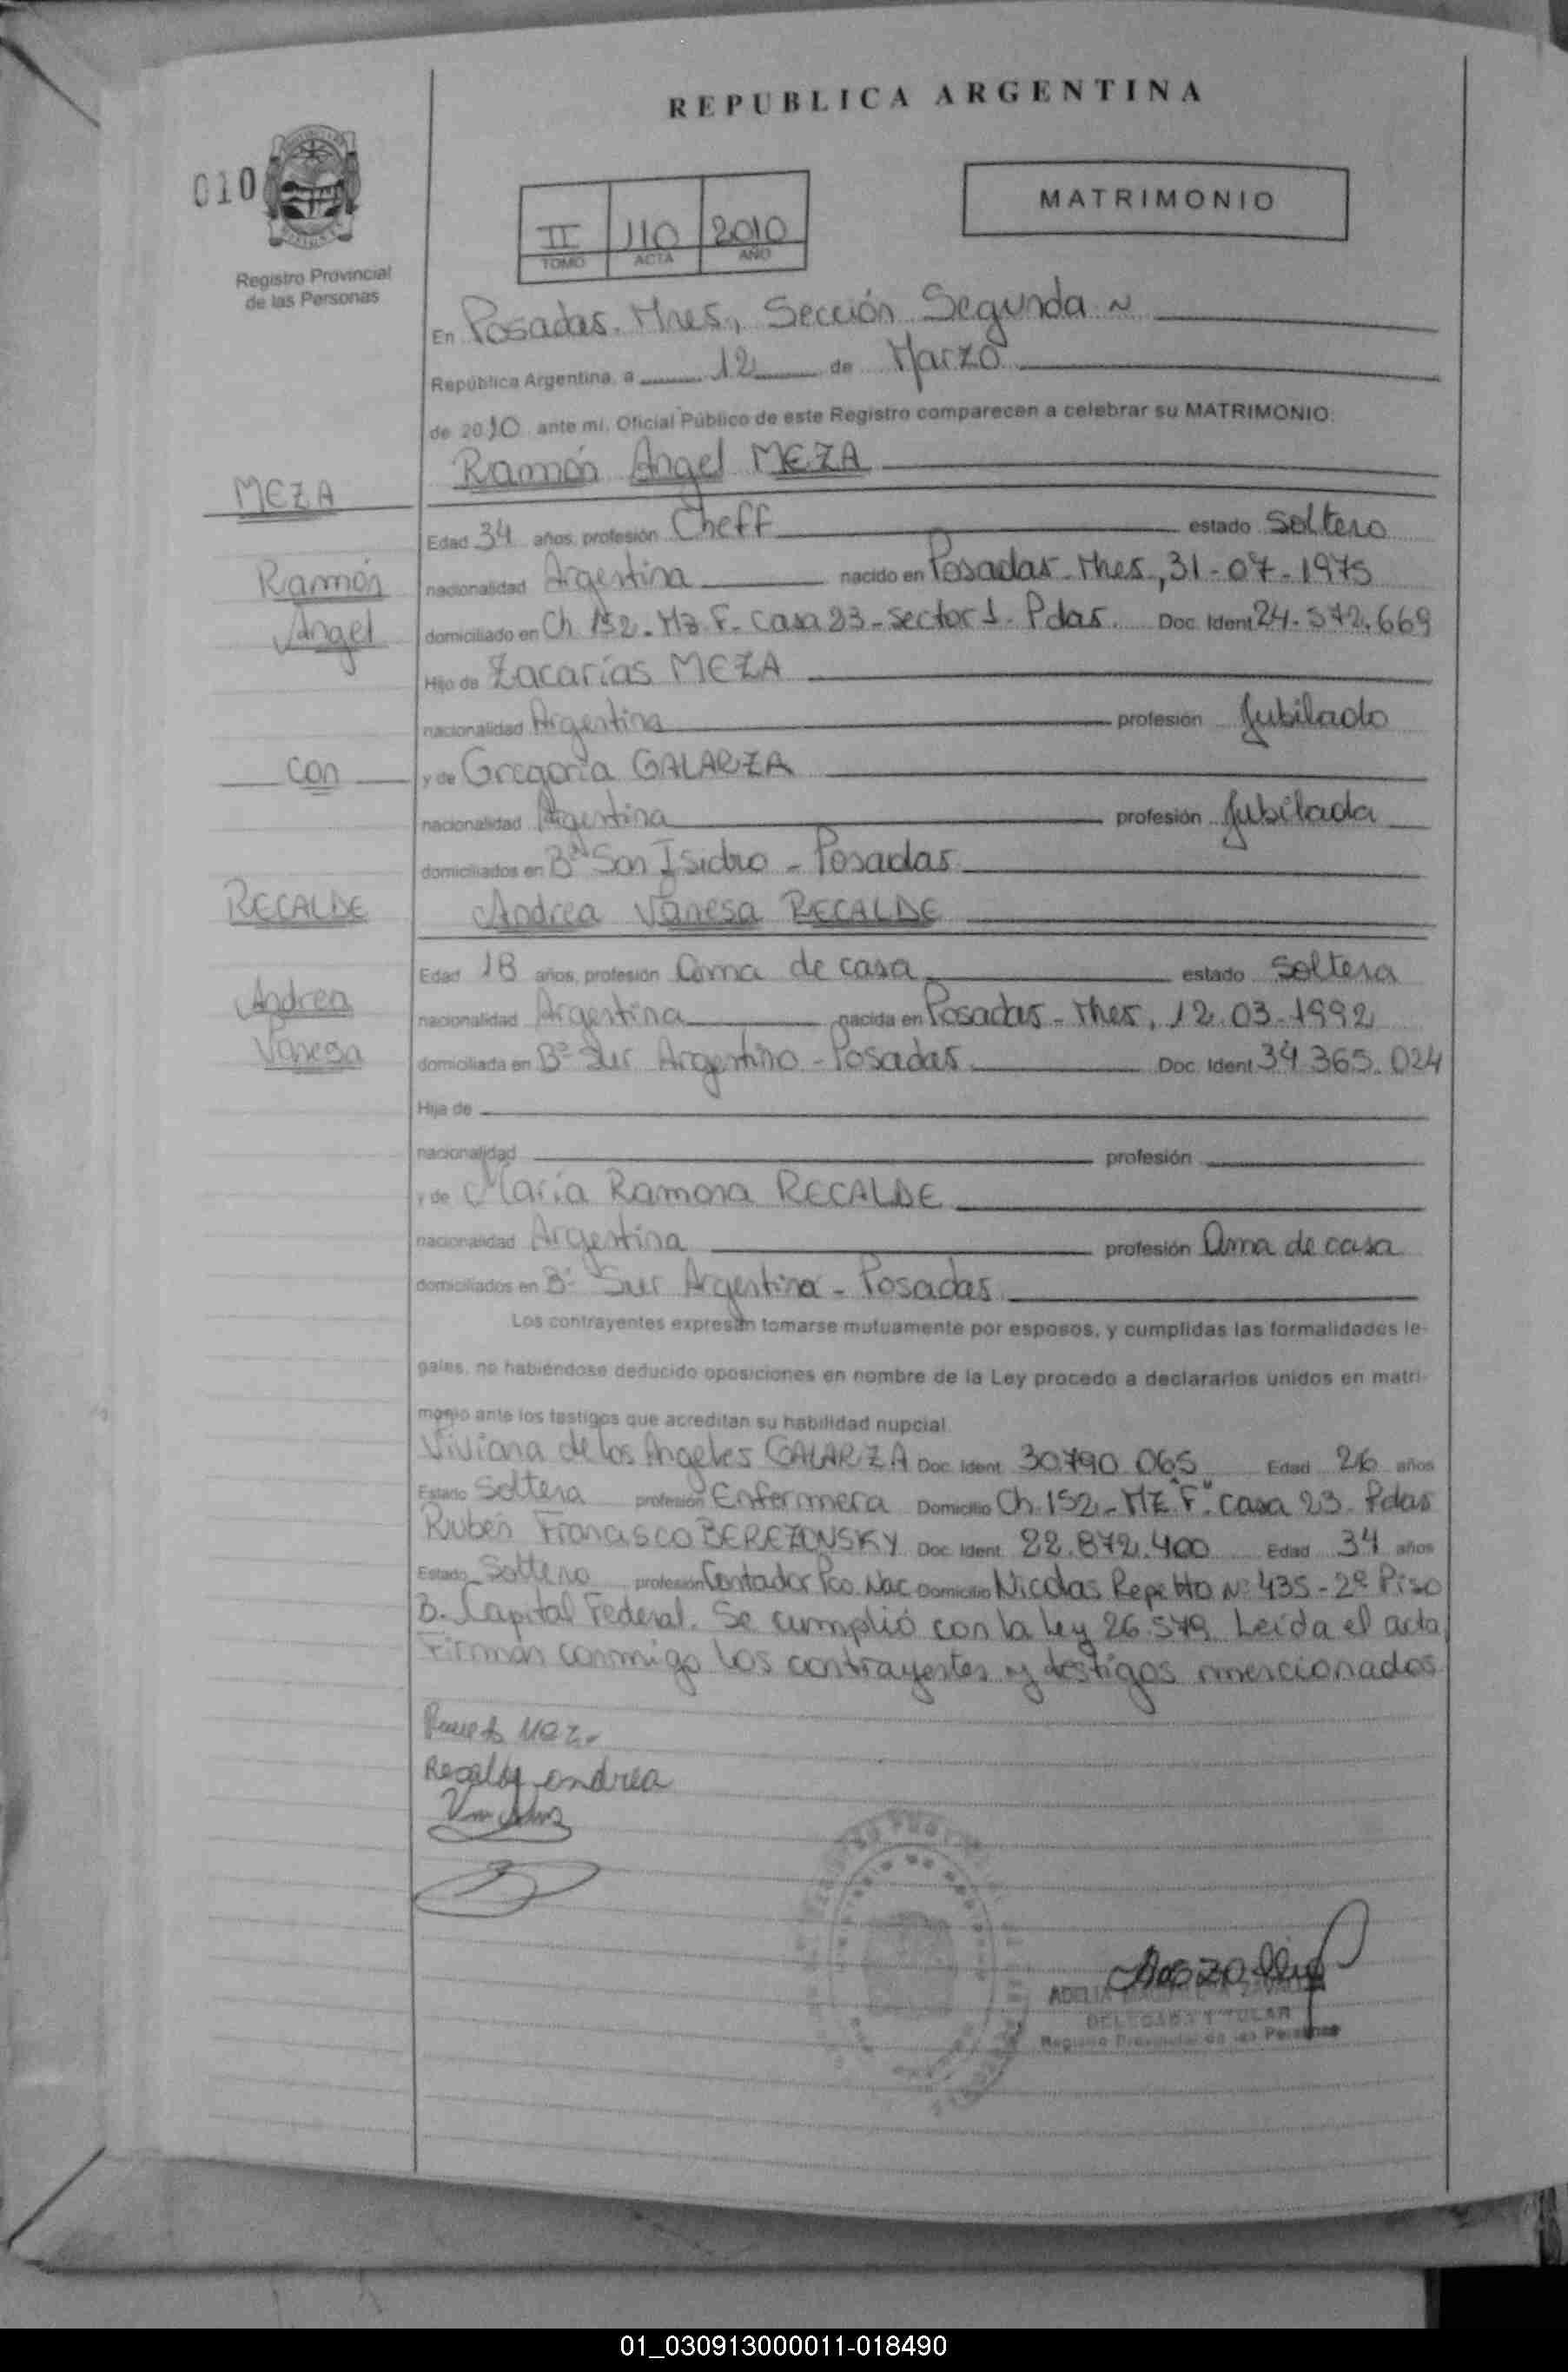 REPUBLICA ARGENTINA
010
Registro Provincial
de las Personas
II 110 2010
TOMO ACTA AÑO
MATRIMONIO
En Posadas. Mnes, Sección Segunda ~
República Argentina, a 12 de Marzo
de 2010 ante mi, Oficial Público de este Registro comparecen a celebrar su MATRIMONIO:
Ramón Angel MEZA
MEZA
Edad 34 años, profesión Cheff estado Soltero
Ramón
nacionalidad Argentina nacido en Posadas - Mnes, 31-07-1975
Angel
domiciliado en Ch 152 - Mz F - Casa 23 - sector 1 - Pdas. Doc. Ident 24.572.669
Hijo de Zacarías MEZA
nacionalidad Argentina profesión Jubilado
con
y de Gregoria GALARZA
nacionalidad Argentina profesión Jubilada
domiciliados en Bº San Isidro - Posadas
RECALDE
Andrea Vanesa RECALDE
Edad 18 años, profesión Ama de casa estado Soltera
Andrea
nacionalidad Argentina nacida en Posadas - Mnes, 12-03-1992
Vanesa
domiciliada en Bº Sur Argentino - Posadas Doc. Ident 34.365.024
Hija de
nacionalidad profesión
y de María Ramona RECALDE
nacionalidad Argentina profesión Ama de casa
domiciliados en Bº Sur Argentina - Posadas
Los contrayentes expresan tomarse mutuamente por esposos, y cumplidas las formalidades le-
gales, no habiéndose deducido oposiciones en nombre de la Ley procedo a declararlos unidos en matri-
monio ante los testigos que acreditan su habilidad nupcial.
Viviana de los Angeles GALARZA Doc. Ident. 30.790.065 Edad 26 años
Estado Soltera profesión Enfermera Domicilio Ch. 152 - MZ "F" casa 23 - Pdas
Rubén Francisco BEREZONSKY Doc. Ident. 22.872.400 Edad 34 años
Estado Soltero profesión Contador Pco. Nac Domicilio Nicolas Repetto Nº 435 - 2º Piso
B. Capital Federal. Se cumplió con la Ley 26.579. Leída el acta,
Firman conmigo los contrayentes y testigos mencionados
Recalde andrea
ADELIA
DELEGADA TITULAR
Registro Provincial de las Personas
01_030913000011-018490